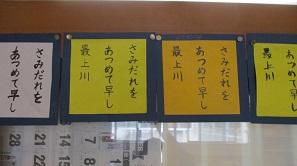 さみだれを
あつめて早し
さみだれを
あつめて早し
最上川
さみだれを
あつめて早し
最上川
さみだれを
あつめて早し
最上川
28 21 14 7
29 22